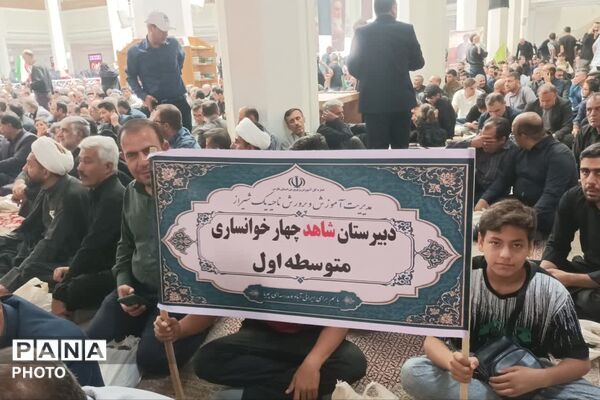 مدیریت آموزش و پرورش ناحیه یک شیراز
دبیرستان شاهد چهار خوانساری
متوسطه اول
PANA
PHOTO